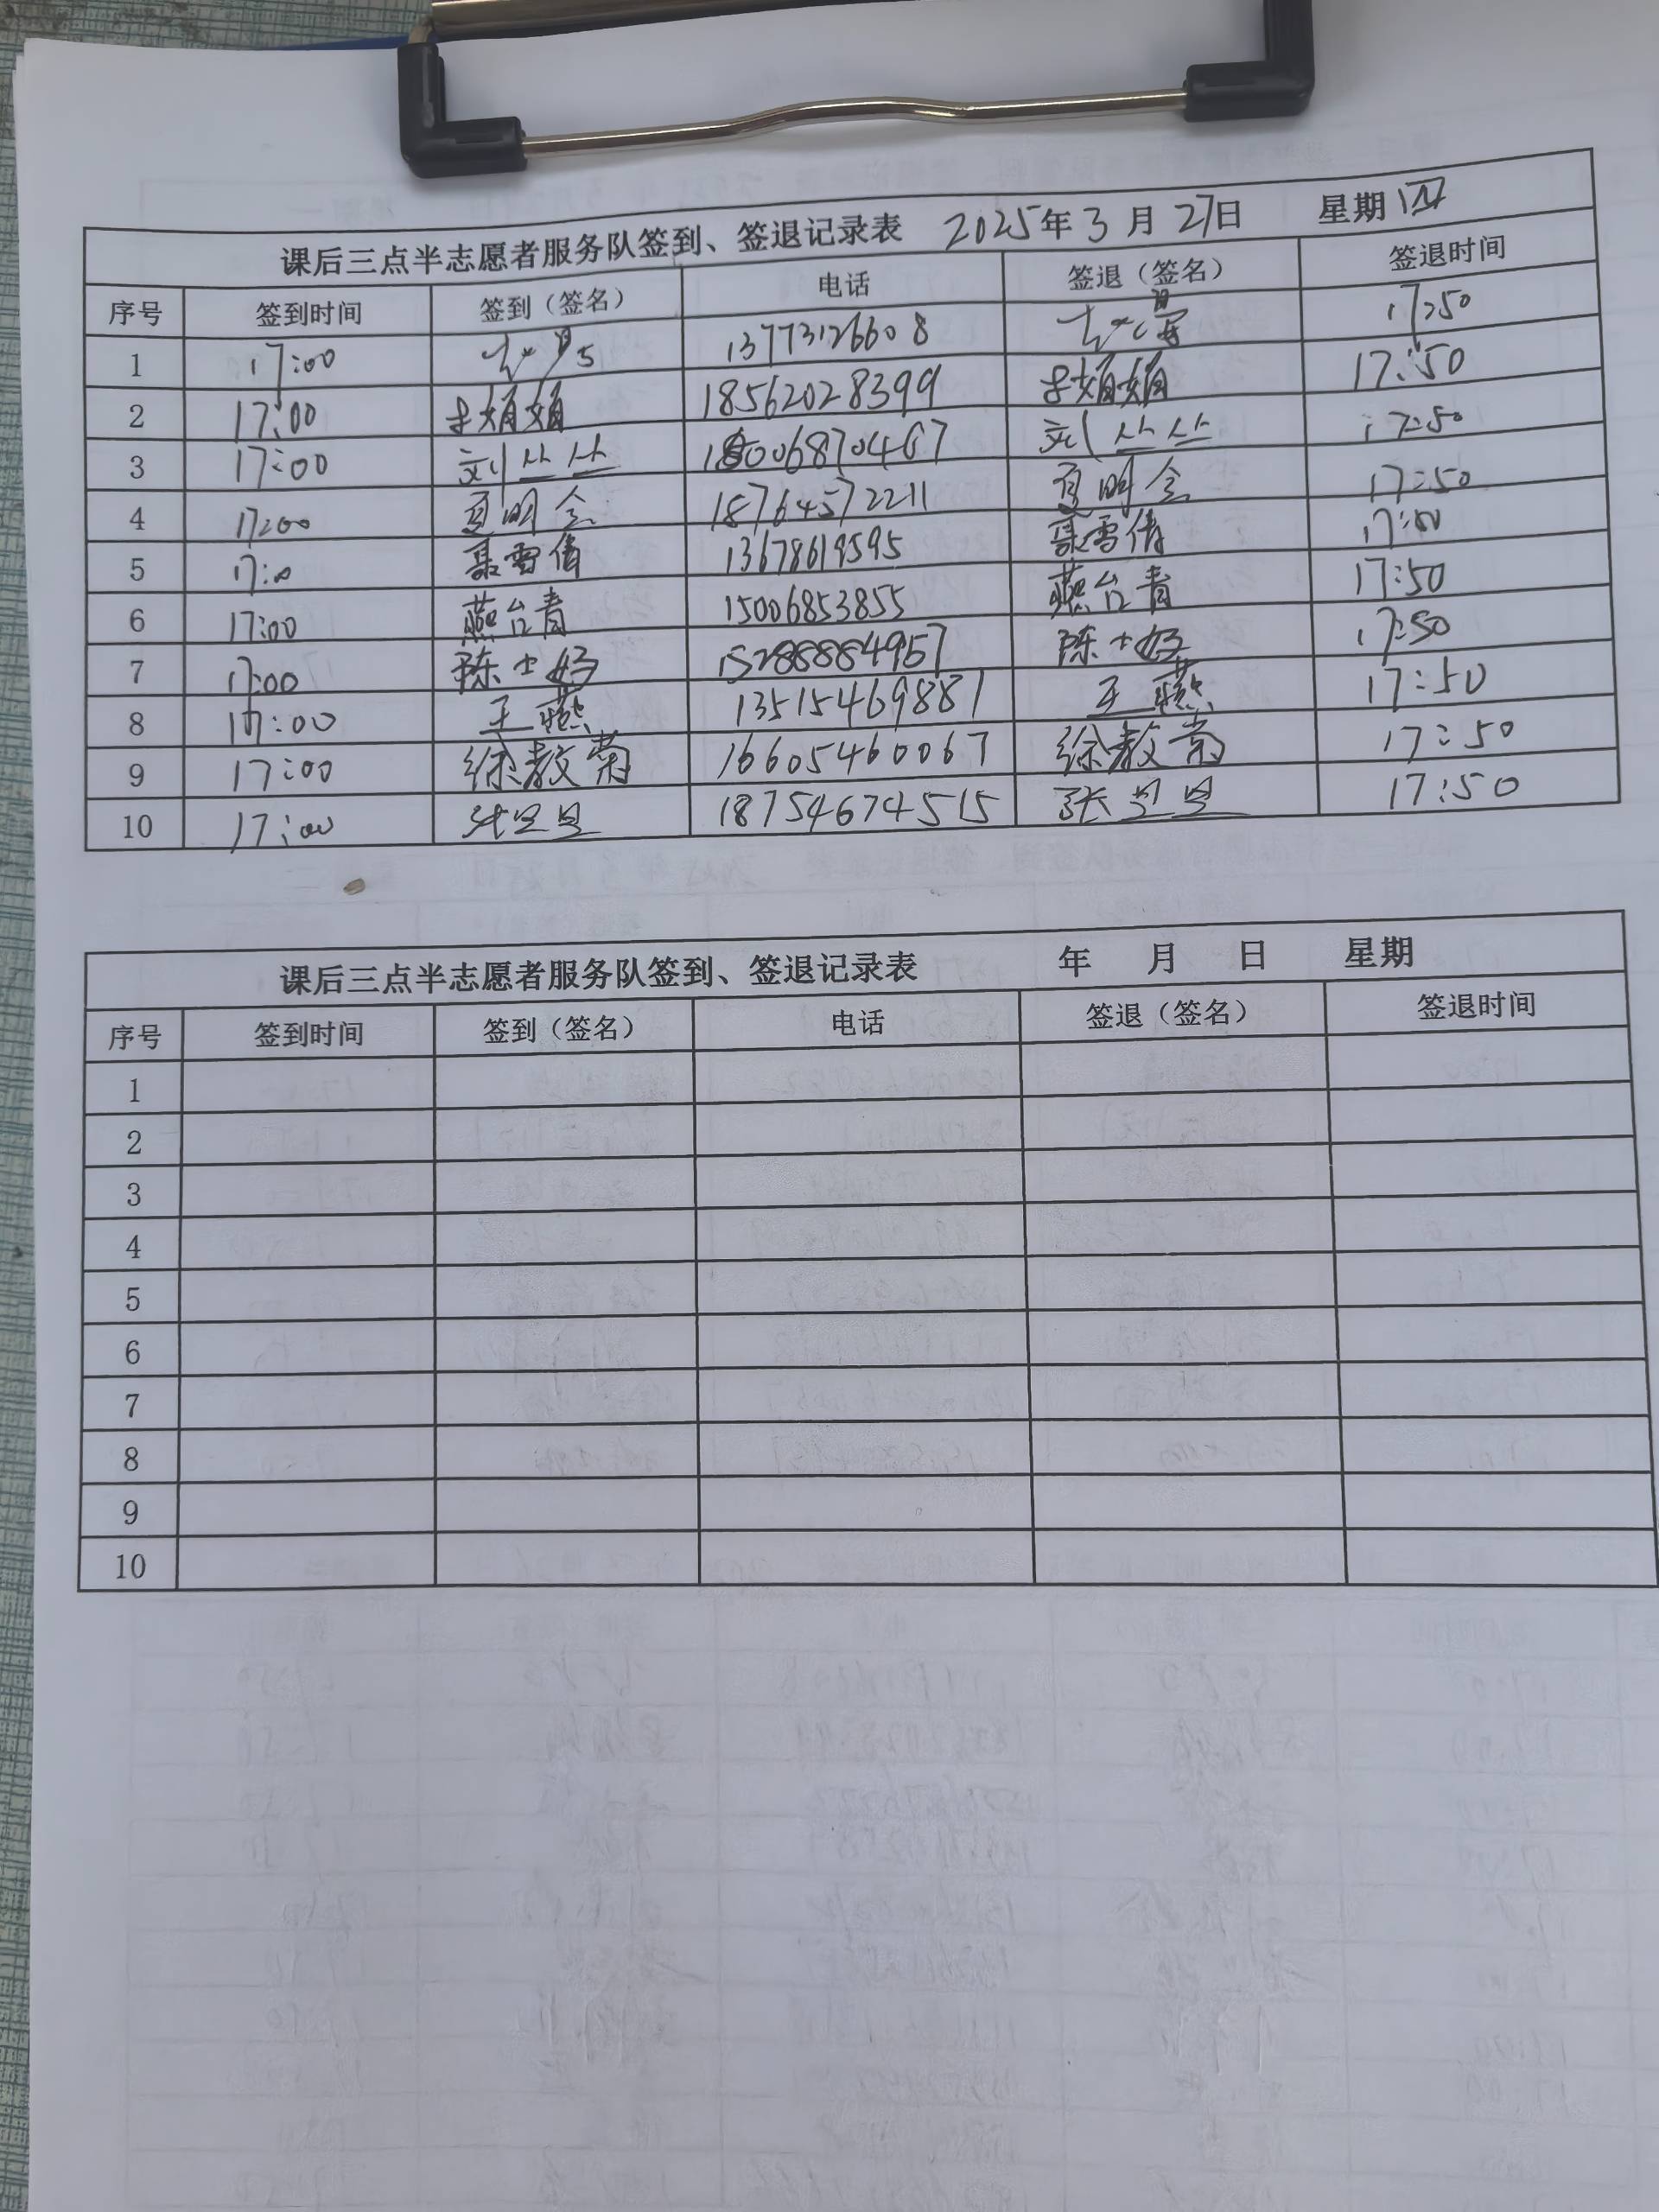 课后三点半志愿者服务队签到、签退记录表 2025年3月27日 星期四
序号 签到时间 签到（签名） 电话 签退（签名） 签退时间
1 17:00 13773126608 17:50
2 17:00 娟娟 18562028399 娟娟 17:50
3 17:00 刘丛丛 17:50
4 17:00 夏明会 18764572211 夏明会 17:50
5 聂雪倩 13678619595 聂雪倩
6 17:00 燕台青 15006853855 燕台青 17:50
7 17:00 陈士好 15288884957 陈士好 17:50
8 17:00 王燕 13515469887 王燕 17:50
9 17:00 徐教菊 16605460067 徐教菊 17:50
10 17:00 张昱昱 18754674515 张昱昱 17:50
课后三点半志愿者服务队签到、签退记录表 年 月 日 星期
序号 签到时间 签到（签名） 电话 签退（签名） 签退时间
1
2
3
4
5
6
7
8
9
10